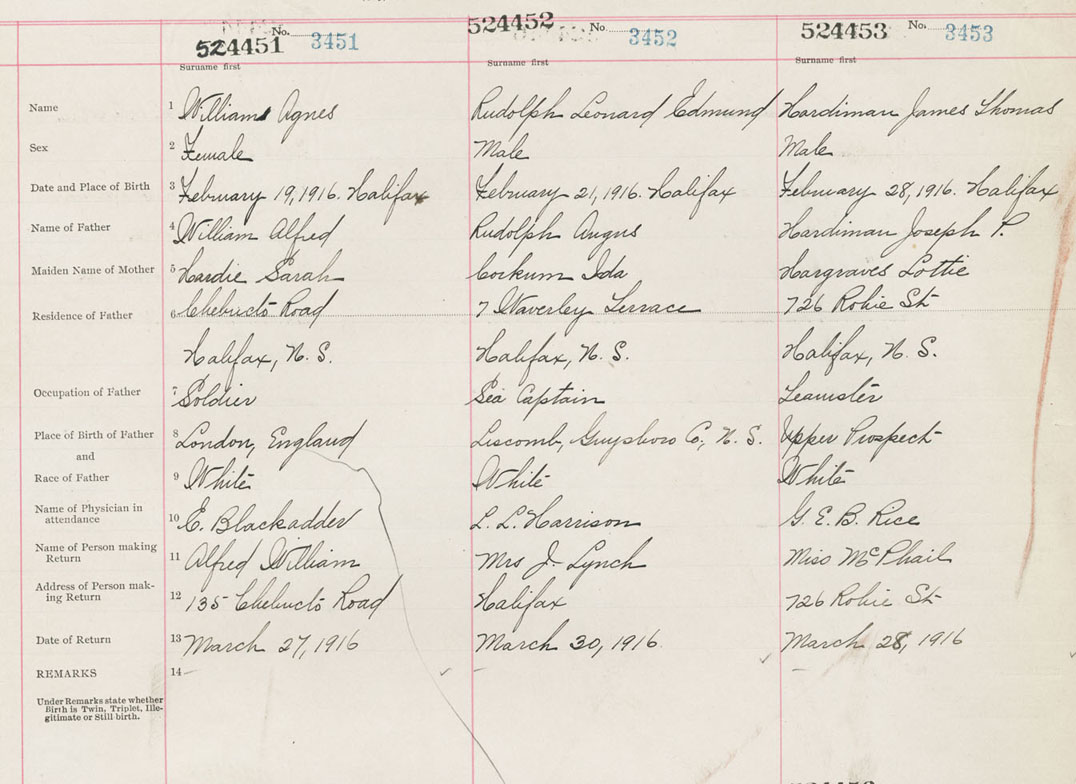 524451 No. 3451 524452 No. 3452 524453 No. 3453
Surname first Surname first Surname first
Name 1 William Agnes Rudolph Leonard Edmund Hardiman James Thomas
Sex 2 Female Male Male
Date and Place of Birth 3 February 19, 1916. Halifax February 21, 1916. Halifax February 28, 1916. Halifax
Name of Father 4 William Alfred Rudolph Angus Hardiman Joseph P.
Maiden Name of Mother 5 Hardie Sarah Corkum Ida Hargraves Lottie
Residence of Father 6 Chebucto Road 7 Waverley Terrace 726 Robie St
Halifax, N. S. Halifax, N. S. Halifax, N. S.
Occupation of Father 7 Soldier Sea Captain Teamster
Place of Birth of Father 8 London, England Liscomb, Guysboro Co, N. S. Upper Prospect
and
Race of Father 9 White White White
Name of Physician in
attendance 10 E. Blackadder L. L. Harrison G. E. B. Rice
Name of Person making
Return 11 Alfred William Mrs J. Lynch Miss McPhail
Address of Person mak-
ing Return 12 135 Chebucto Road Halifax 726 Robie St
Date of Return 13 March 27, 1916 March 30, 1916 March 28, 1916
REMARKS 14 –
Under Remarks state whether
Birth is Twin, Triplet, Ille-
gitimate or Still-birth.